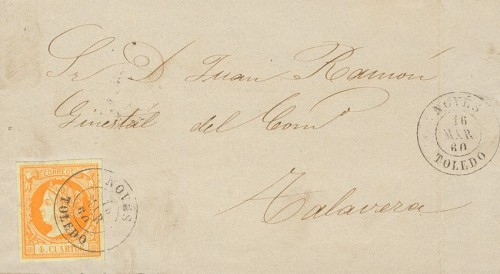 Sr. D. Juan Ramón
Ginestal del Comº
Talavera
NOVÉS
16
MAR
60
TOLEDO
CORREOS
4 CUARTOS
NOVÉS
16
MAR
60
TOLEDO